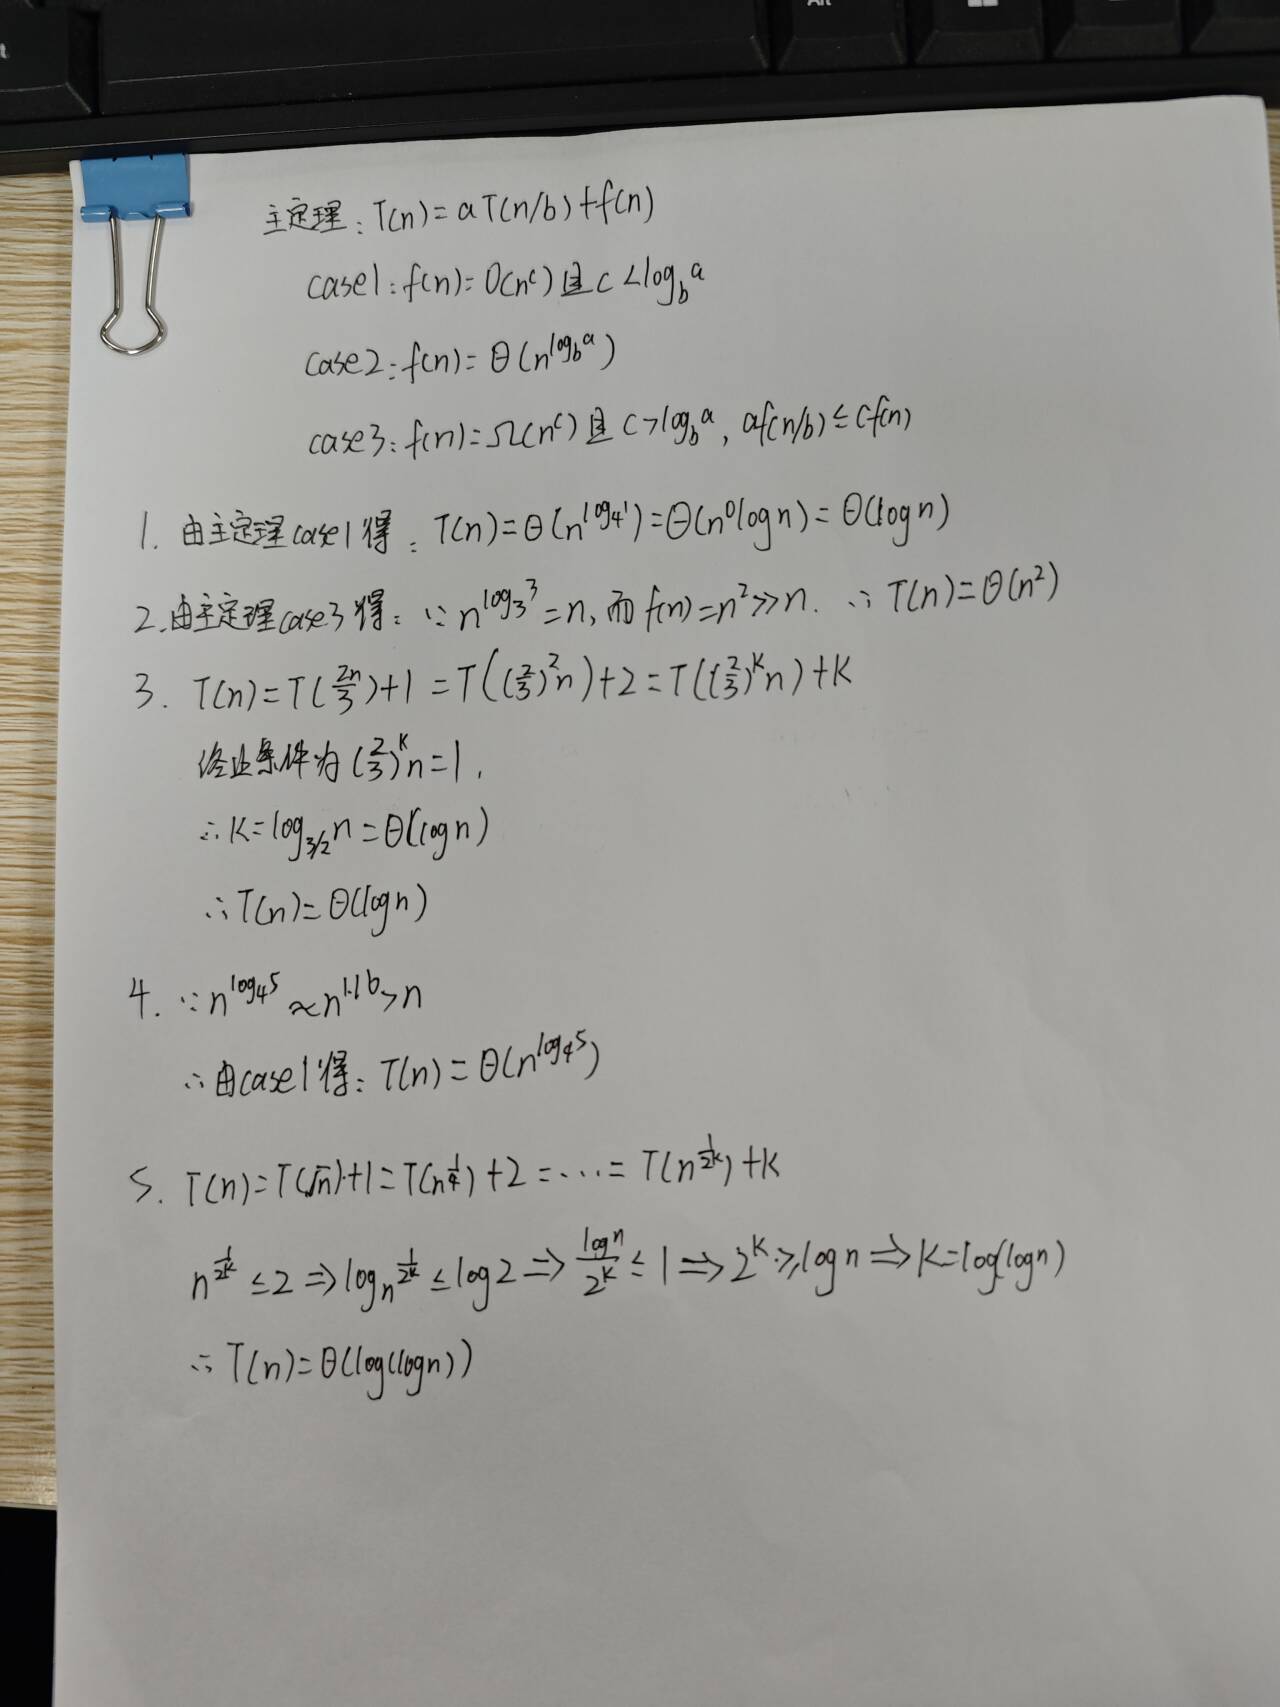 Alt
主定理：T(n)=aT(n/b)+f(n)
case1：f(n)=O(n^c)且c<log_b^a
case2：f(n)=θ(n^{log_b^a})
case3：f(n)=Ω(n^c)且c>log_b^a，af(n/b)≤cf(n)
1. 由主定理case1得：T(n)=θ(n^{log_4^1})=θ(n^0logn)=θ(logn)
2. 由主定理case3得：∵n^{log_3^3}=n，而f(n)=n^2≫n. ∴T(n)=θ(n^2)
3. T(n)=T(2n/3)+1=T((2/3)^2n)+2=T((2/3)^kn)+k
终止条件为(2/3)^kn=1，
∴k=log_{3/2}n=θ(logn)
∴T(n)=θ(logn)
4. ∵n^{log_4^5}≈n^{1.16}>n
∴由case1得：T(n)=θ(n^{log_4^5})
5. T(n)=T(√n)+1=T(n^{1/4})+2=...=T(n^{1/2^k})+k
n^{1/2^k}≤2⇒logn^{1/2^k}≤log2⇒logn/2^k≤1⇒2^k≥logn⇒k=log(logn)
∴T(n)=θ(log(logn))